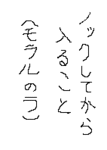 ノックしてから
入ること
(モラルのラ)